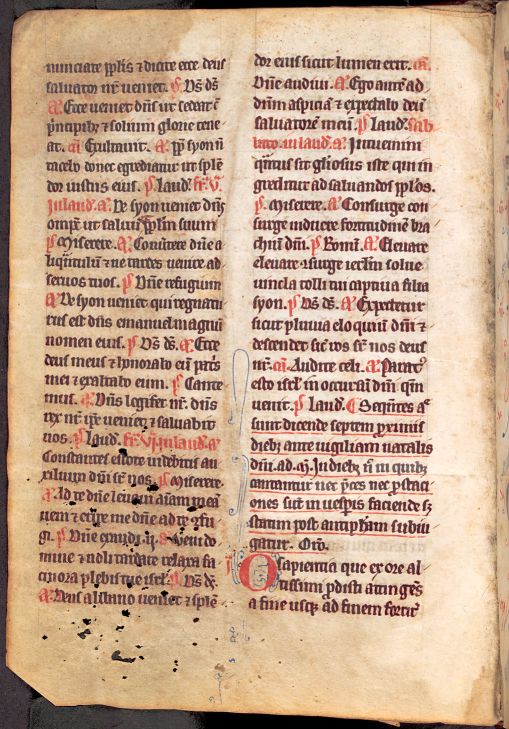 nunciate pplis ⁊ dicite ecce deus
saluator nr̄ veniet. p̄. Ds̄ ds̄
a᷑ Ecce veniet dn̄s ut sedeat cū
pͥncipibꝫ ⁊ solium glorie tene
at. cū Exultauit. a᷑. ꝓp syon nō
tacebo donec egrediatur ut splē
dor iustus eius. p̄ laud. fr̄. v̄
In laud. a᷑. De syon veniet dn̄s
omp̄t ut saluū pp̄lm suum
p̄ Miserere. a᷑. Conuertere dn̄e a
liqͣntulū ⁊ ne tardes venire ad
seruos tuos. p̄ Dn̄e refugium
a᷑ De syon veniet qui regnatu
rus est dn̄s emanuel magnū
nomen eius. p̄ Ds̄ ds̄. a᷑. Ecce
deus meus ⁊ honorabo eū pr̄is
mei ⁊ exaltabo eum. p̄ Cante
mus. a᷑. Dn̄s legifer nr̄. dn̄s
rex nr̄ ip̄e veniet ⁊ saluabit
nos. p̄ laud. fr̄. vi. in laud. a᷑
Constantes estote videbitis au
xilium dn̄i sr̄ nos. p̄ Miserere
a᷑. Ad te dn̄e leuaui aīam meā
veni ⁊ eripe me dn̄e ad te ꝯfu
gi. p̄ Dn̄e exaudi. a᷑ Veni do
mine ⁊ noli tardare relaxa fa
cinora plebis tue isrl̄. p̄ Ds̄ ds̄.
a᷑ Deus a libano veniet ⁊ splē
dor eius sicut lumen erit. cā.
Dn̄e audiui. a᷑. Ego autē ad
dn̄m aspiciā ⁊ expectabo deū
saluatorē meū. p̄ laud. Sab
bato. in laud. a᷑ Intuemini
qͣntus sit gl̄iosus iste qui in
greditur ad saluandos pplōs.
p̄ Miserere. a᷑ Consurge con
surge induere fortitudinē bra
chiū dn̄i. p̄ Bonū. a᷑. Eleuare
eleuare ꝯsurge ierl̄m solue
vincla colli tui captiua filia
syon. p̄ Ds̄ ds̄. a᷑ Expectetur
sicut pluuia eloquiū dn̄i ⁊
descendet sic̄ ros sr̄ nos deus
nr̄. cā Audite celi. a᷑ Paratꝰ
esto isrl̄ in occursū dn̄i qm̄
venit. p̄ laud. Sequētes aͤ
sunt dicende septem ꝓximis
diebꝫ ante vigiliam natalis
dn̄i. ad. M̄. In diebꝫ n̄ in quibꝫ
cantantur nec p̄ces nec ꝓstaci
ones sūt in vesp̄is faciende sꝫ
statim post antiph̄am subiū
gatur. Orō.
O sapientia que ex ore al
tissimi ꝓdisti attingēs
a fine usqꝫ ad finem fortit᷑